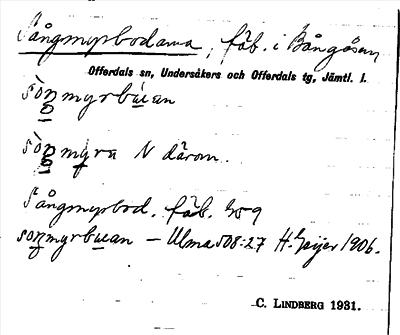 Sångmyrbodarna, fäb. i Bångåsen
Offerdals sn, Undersåkers och Offerdals tg, Jämtl. l.
sòŋmyrbuan
sòŋmyra N därom.
Sångmyrbod. fäb. G59
soŋmyrbuan — Ulma 508:27 H. Geijer 1906.
C. LINDBERG 1931.